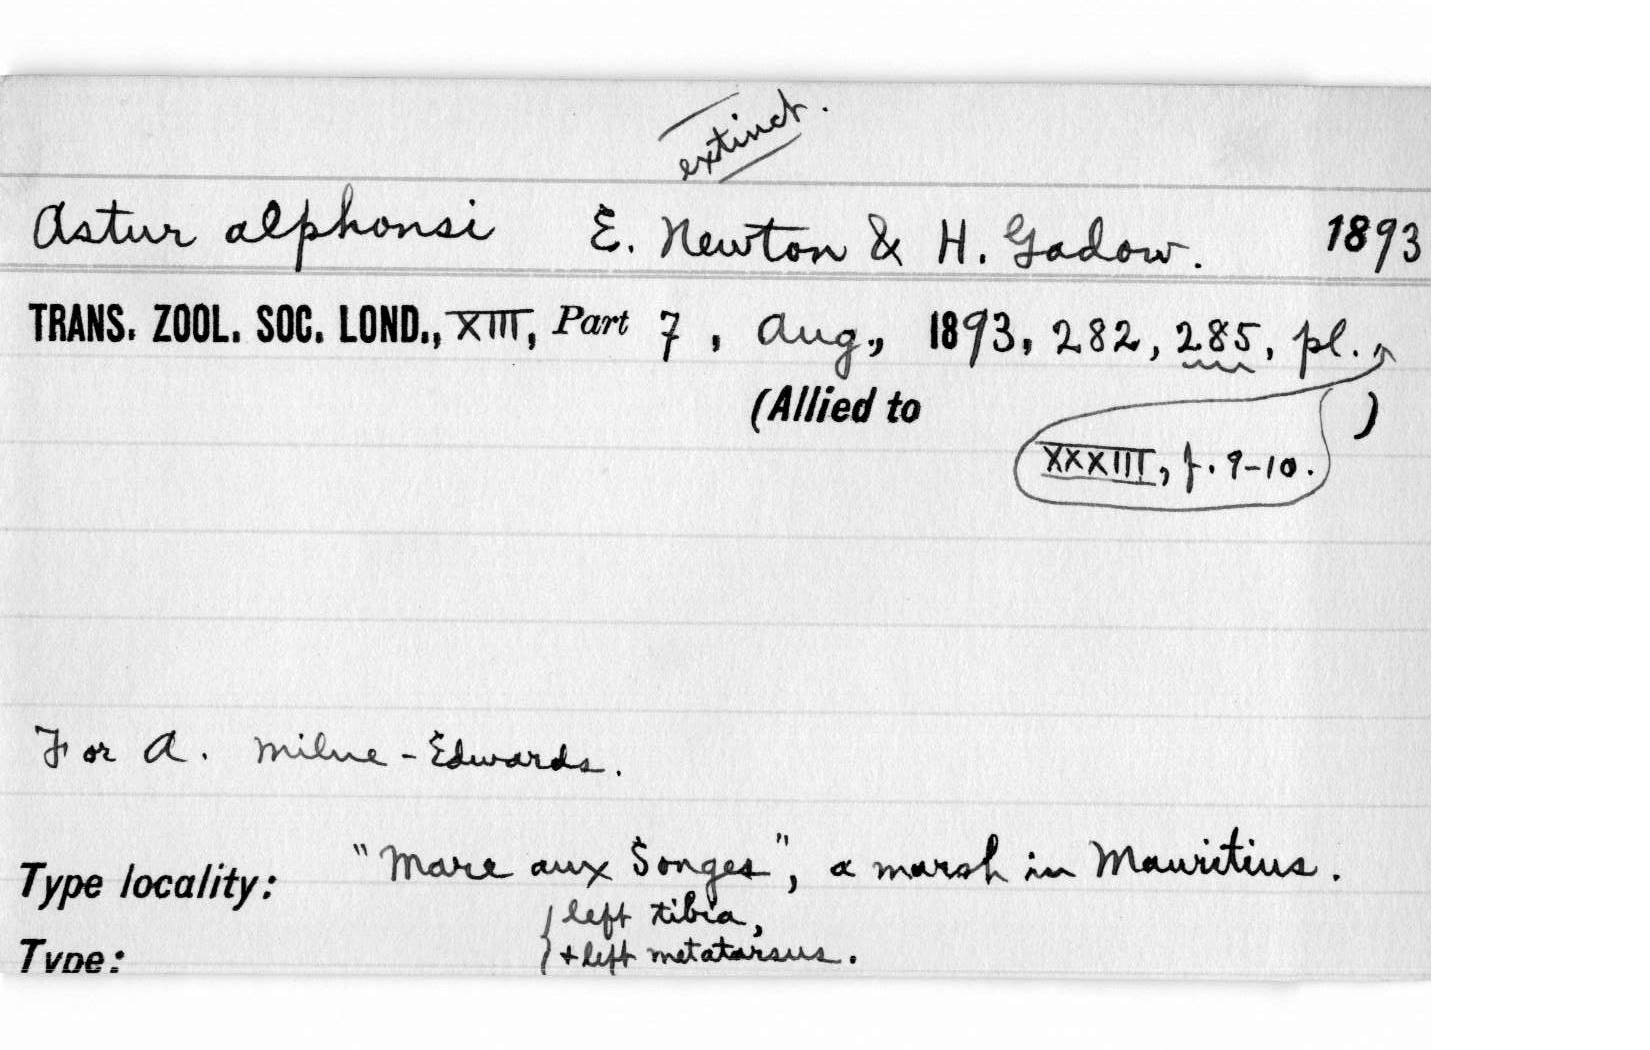 extinct.
Astur alphonsi E. Newton & H. Gadow. 1893
TRANS. ZOOL. SOC. LOND., XIII, Part 7, Aug., 1893, 282, 285, pl.
(Allied to )
XXXIII, f. 9-10.
For A. Milne-Edwards.
Type locality: "Mare aux Songes", a marsh in Mauritius.
left tibia,
Type: + left metatarsus.